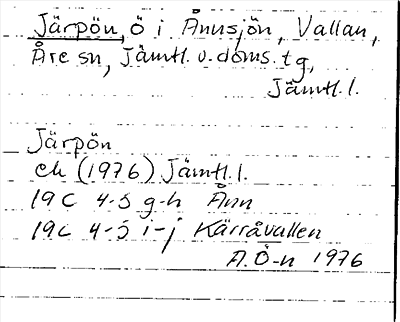 Järpön, ö i Ånnsjön, Vallan,
Åre sn, Jämtl. v. doms. tg,
Jämtl. l.
Järpön
ek (1976) Jämtl. l.
19C 4-5 g-h Ånn
19C 4-5 i-j Kärråvallen
A.Ö-n 1976